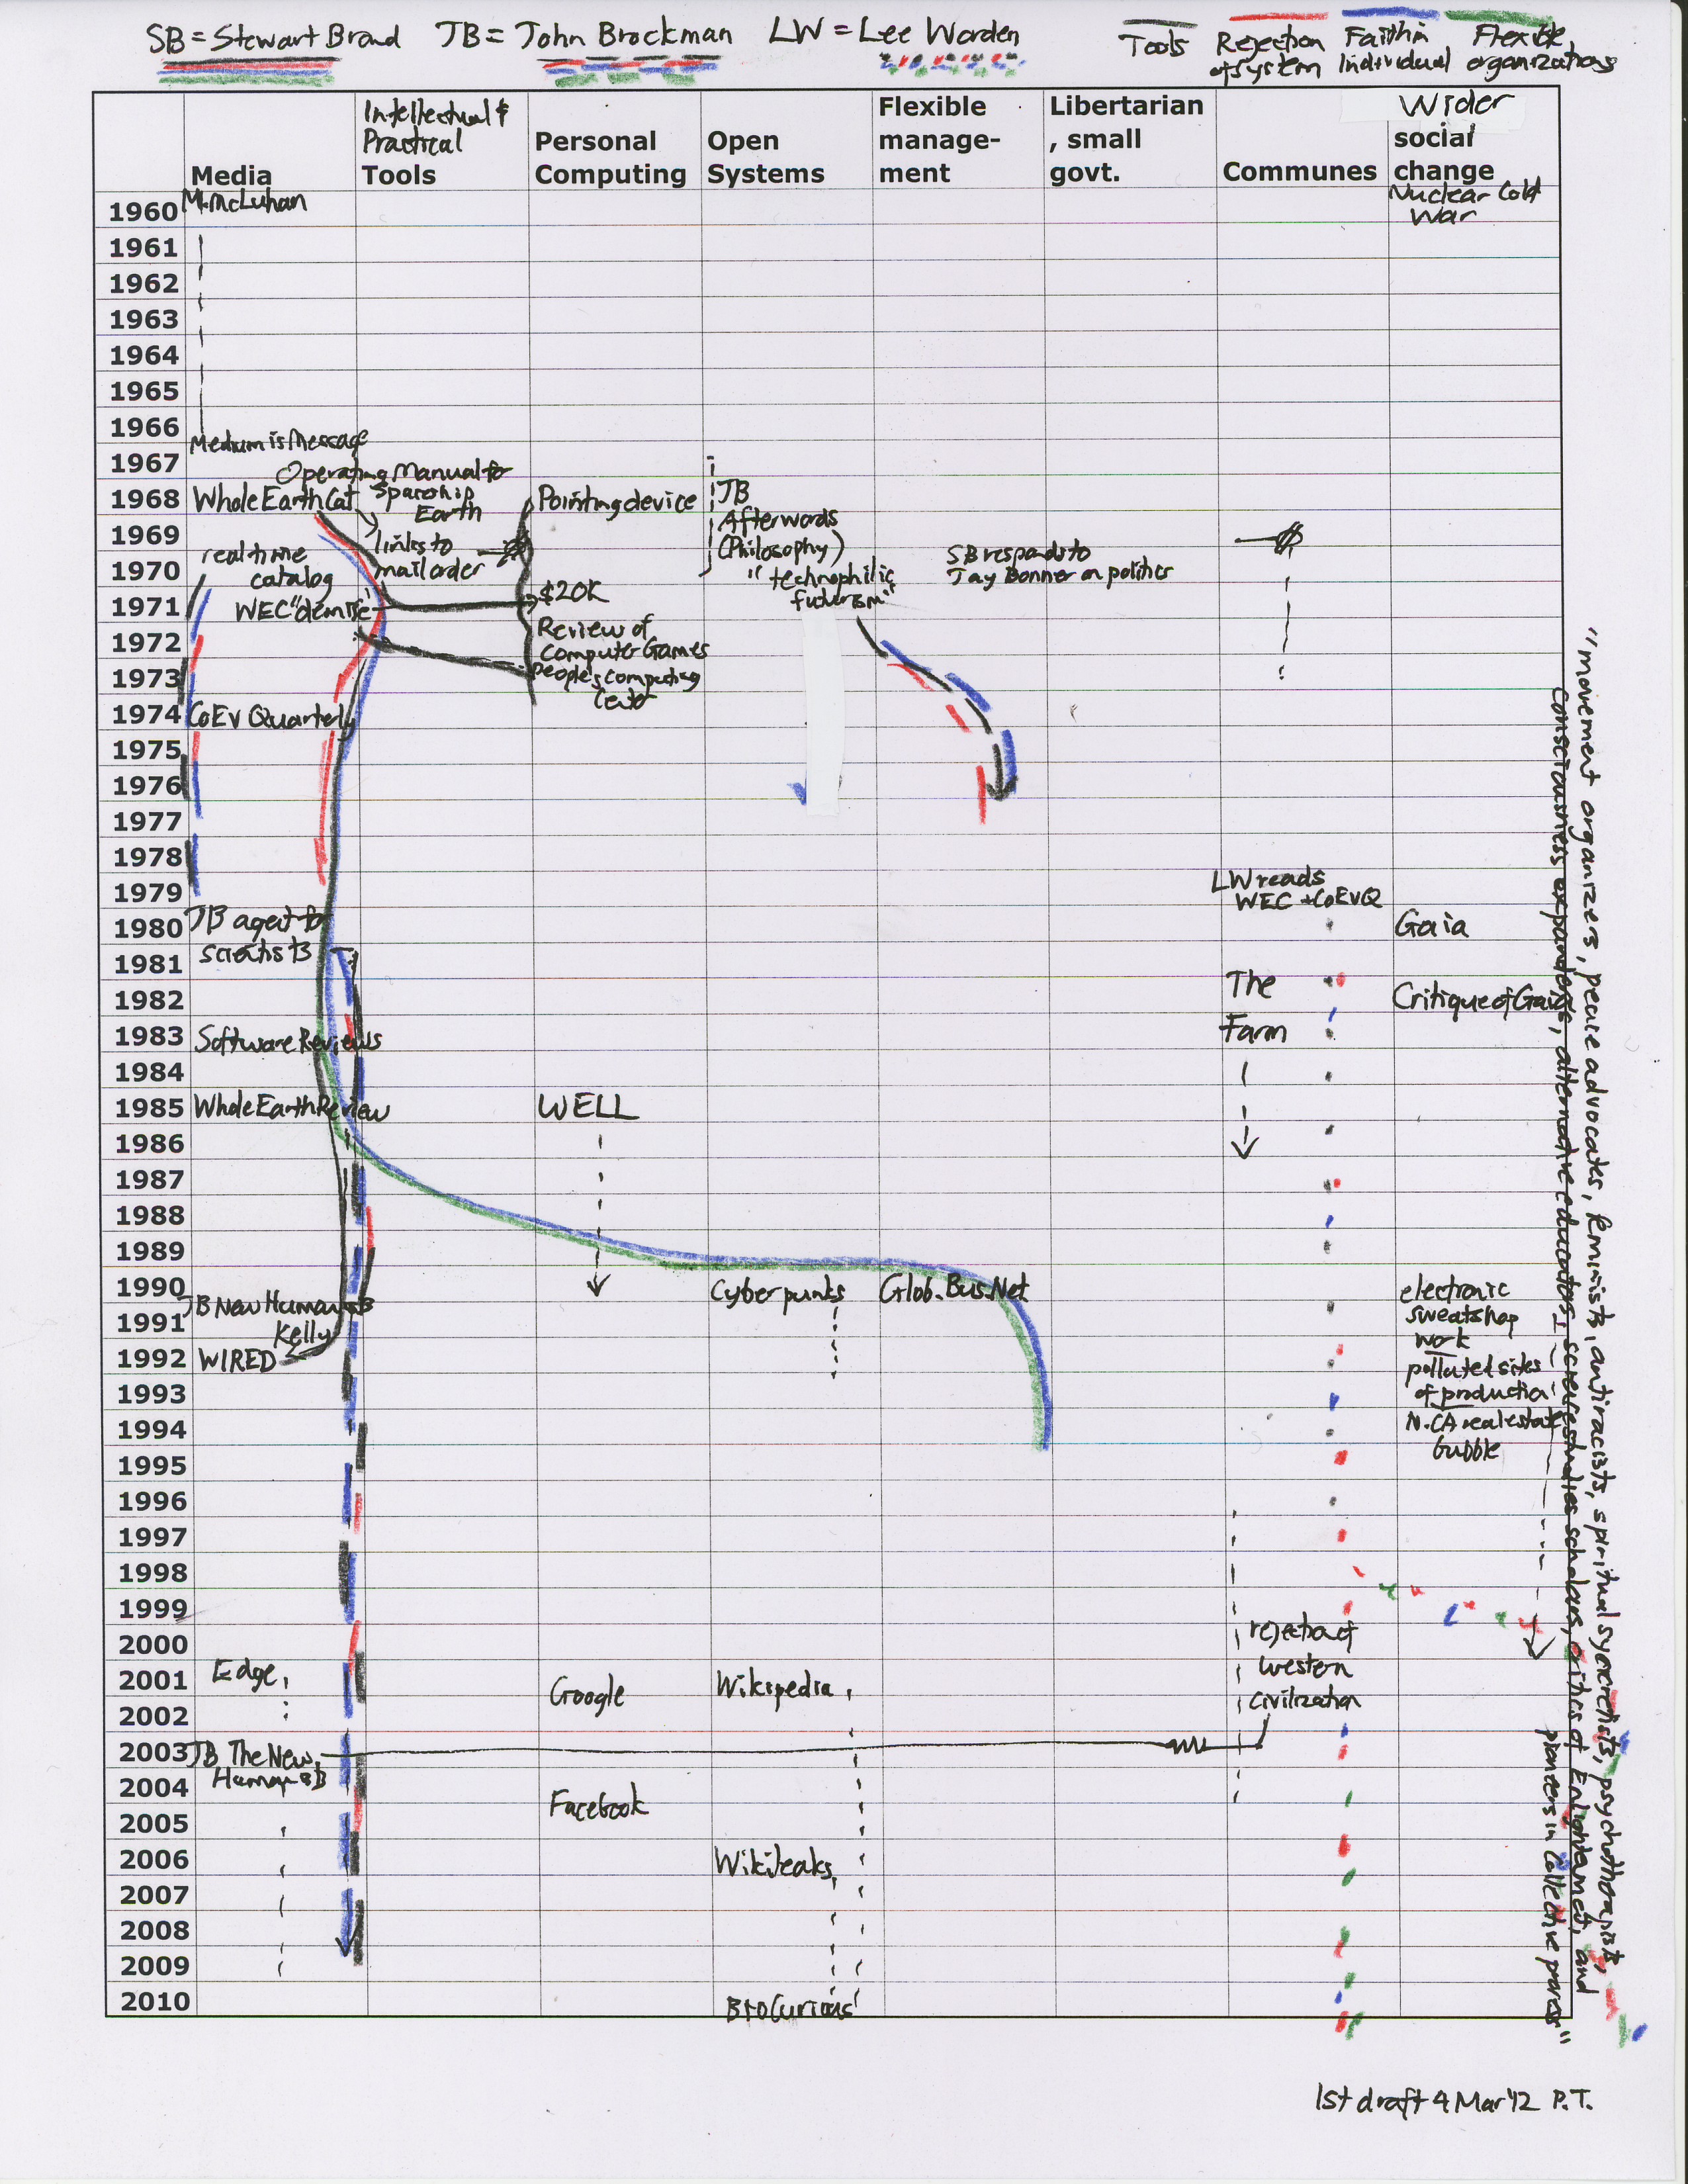 SB = Stewart Brand JB = John Brockman LW = Lee Worden
Tools
Rejection
of system
Faith in
Individual
Flexible
organizations
Media
Intellectual &
Practical
Tools
Personal
Computing
Open
Systems
Flexible
manage-
ment
Libertarian
, small
govt.
Communes
Wider
social
change
1960
M. McLuhan
Nuclear Cold
War
1961
1962
1963
1964
1965
1966
Medium is Message
1967
Operating Manual for
Spaceship
Earth
1968
Whole Earth Cat
Pointing device
JB
Afterwords
(Philosophy)
"technophilic
futurism"
1969
real time
catalog
links to
mail order
SB responds to
Jay Bonner on politics
$
1970
1971
WEC "demise"
$20K
1972
Review of
Computer Games
1973
People's computing
Center
1974
CoEv Quarterly
1975
1976
1977
1978
1979
LW reads
WEC + CoEvQ
1980
JB agent for
scientists
Gaia
1981
1982
The
Farm
Critique of Gaia
1983
Software Reviews
1984
1985
Whole Earth Review
WELL
1986
1987
1988
1989
1990
Cyberpunks
Glob. Bus. Net
electronic
sweatshop
work
polluted sites
of production
N. CA real estate
bubble
JB New Humanists
1991
Kelly
1992
WIRED
1993
1994
1995
1996
1997
1998
1999
2000
rejection of
western
civilization
2001
Edge
Google
Wikipedia
2002
2003
JB The New
Humanists
2004
Facebook
2005
2006
Wikileaks
2007
2008
2009
2010
BioCurious
"movement organizers, peace advocates, feminists, antiracists, spiritual syncretists, psychotherapists,
consciousness expanders, alternative educators, science studies scholars, critics of Enlightenment, and
pioneers in collective process"
1st draft 4 Mar '12 P.T.